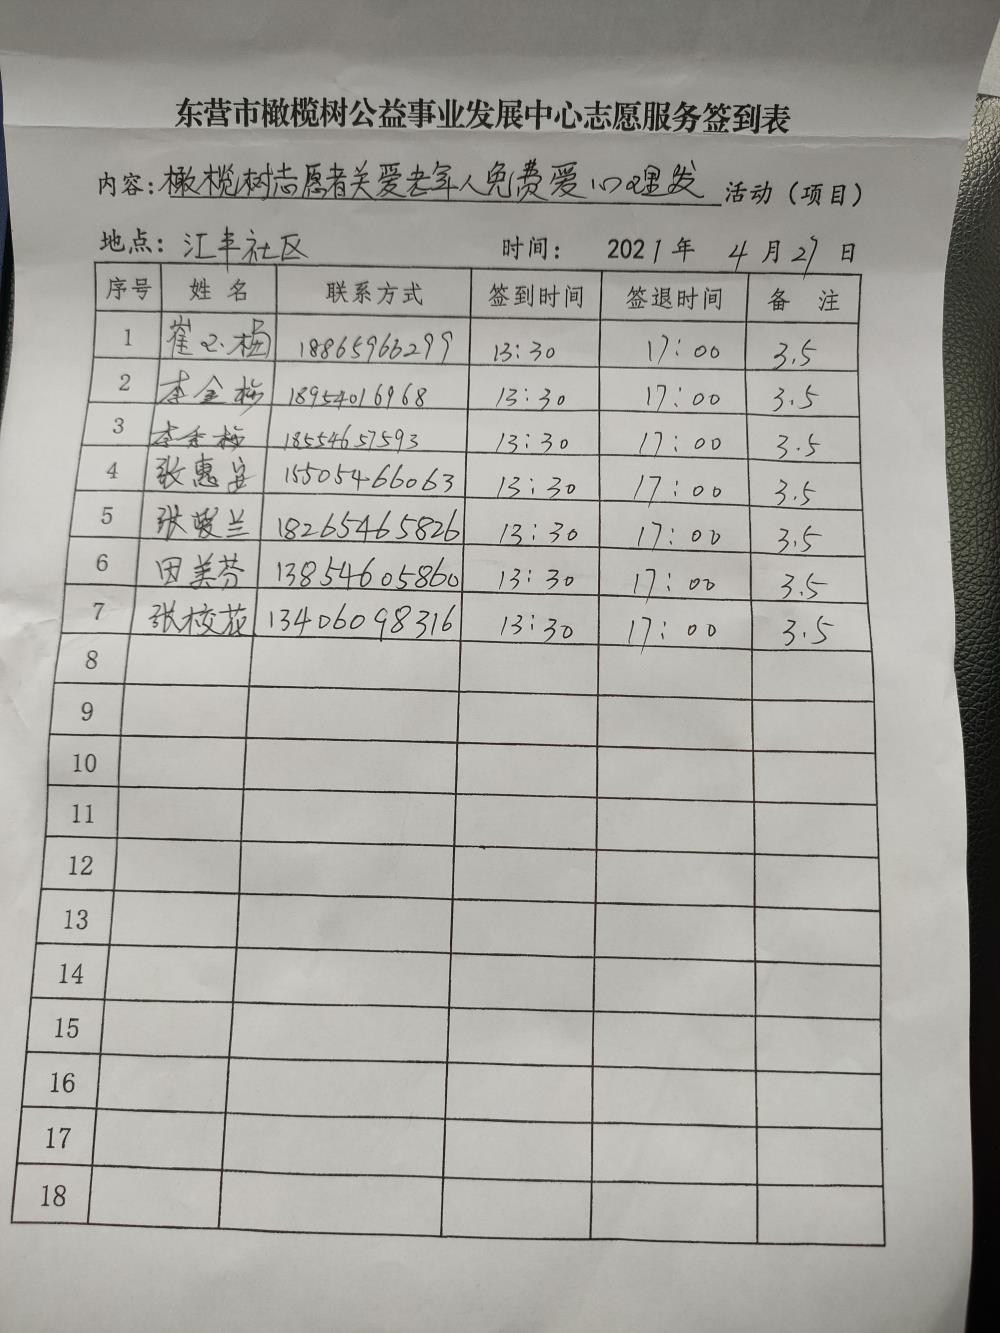 东营市橄榄树公益事业发展中心志愿服务签到表
内容:橄榄树志愿者关爱老年人免费爱心理发 活动(项目)
地点: 汇丰社区 时间: 2021年 4月27日
序号 姓名 联系方式 签到时间 签退时间 备注
1 崔 梅 18865963299 13:30 17:00 3.5
2 李金梅 18954016968 13:30 17:00 3.5
3 李 梅 18554657593 13:30 17:00 3.5
4 张惠 15505466063 13:30 17:00 3.5
5 张 兰 18265465826 13:30 17:00 3.5
6 田美芬 13854605860 13:30 17:00 3.5
7 张校花 13406098316 13:30 17:00 3.5
8
9
10
11
12
13
14
15
16
17
18